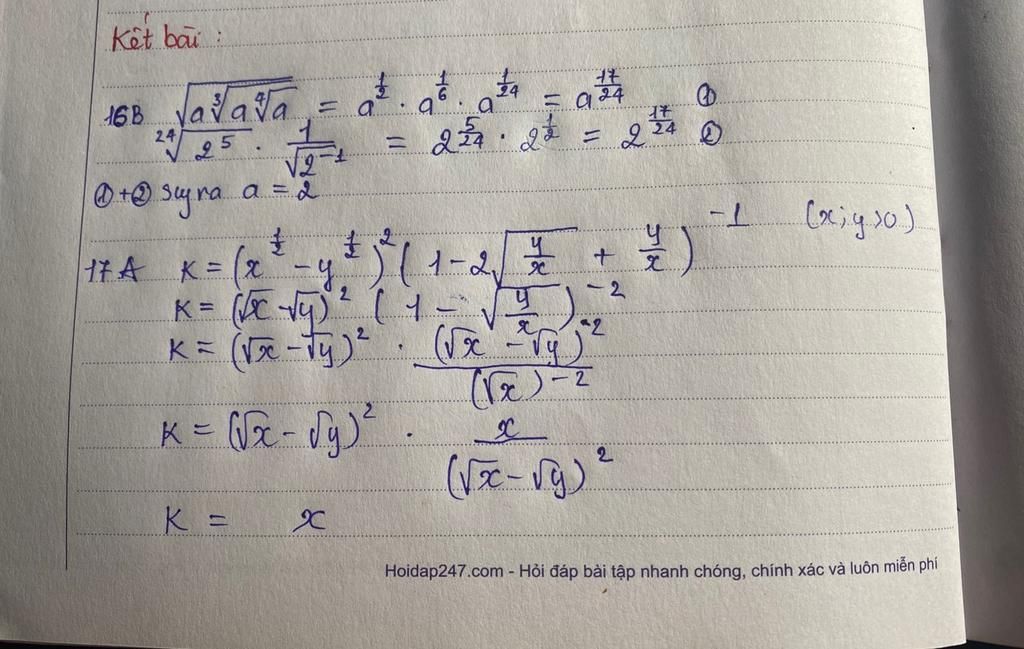 Kết bài :
16B √a∛a∜a = a^{1/2} · a^{1/6} · a^{1/24} = a^{17/24} ①
²⁴√2⁵ · 1/√2⁻¹ = 2^{5/24} · 2^{1/2} = 2^{17/24} ②
①+② suy ra a = 2
17A K = (x^{1/2} - y^{1/2})² (1 - 2√(y/x) + y/x)⁻¹ (x;y>0)
K = (√x - √y)² (1 - √(y/x))⁻²
K = (√x - √y)² · (√x - √y)⁻² / (√x)⁻²
K = (√x - √y)² · x / (√x - √y)²
K = x
Hoidap247.com - Hỏi đáp bài tập nhanh chóng, chính xác và luôn miễn phí